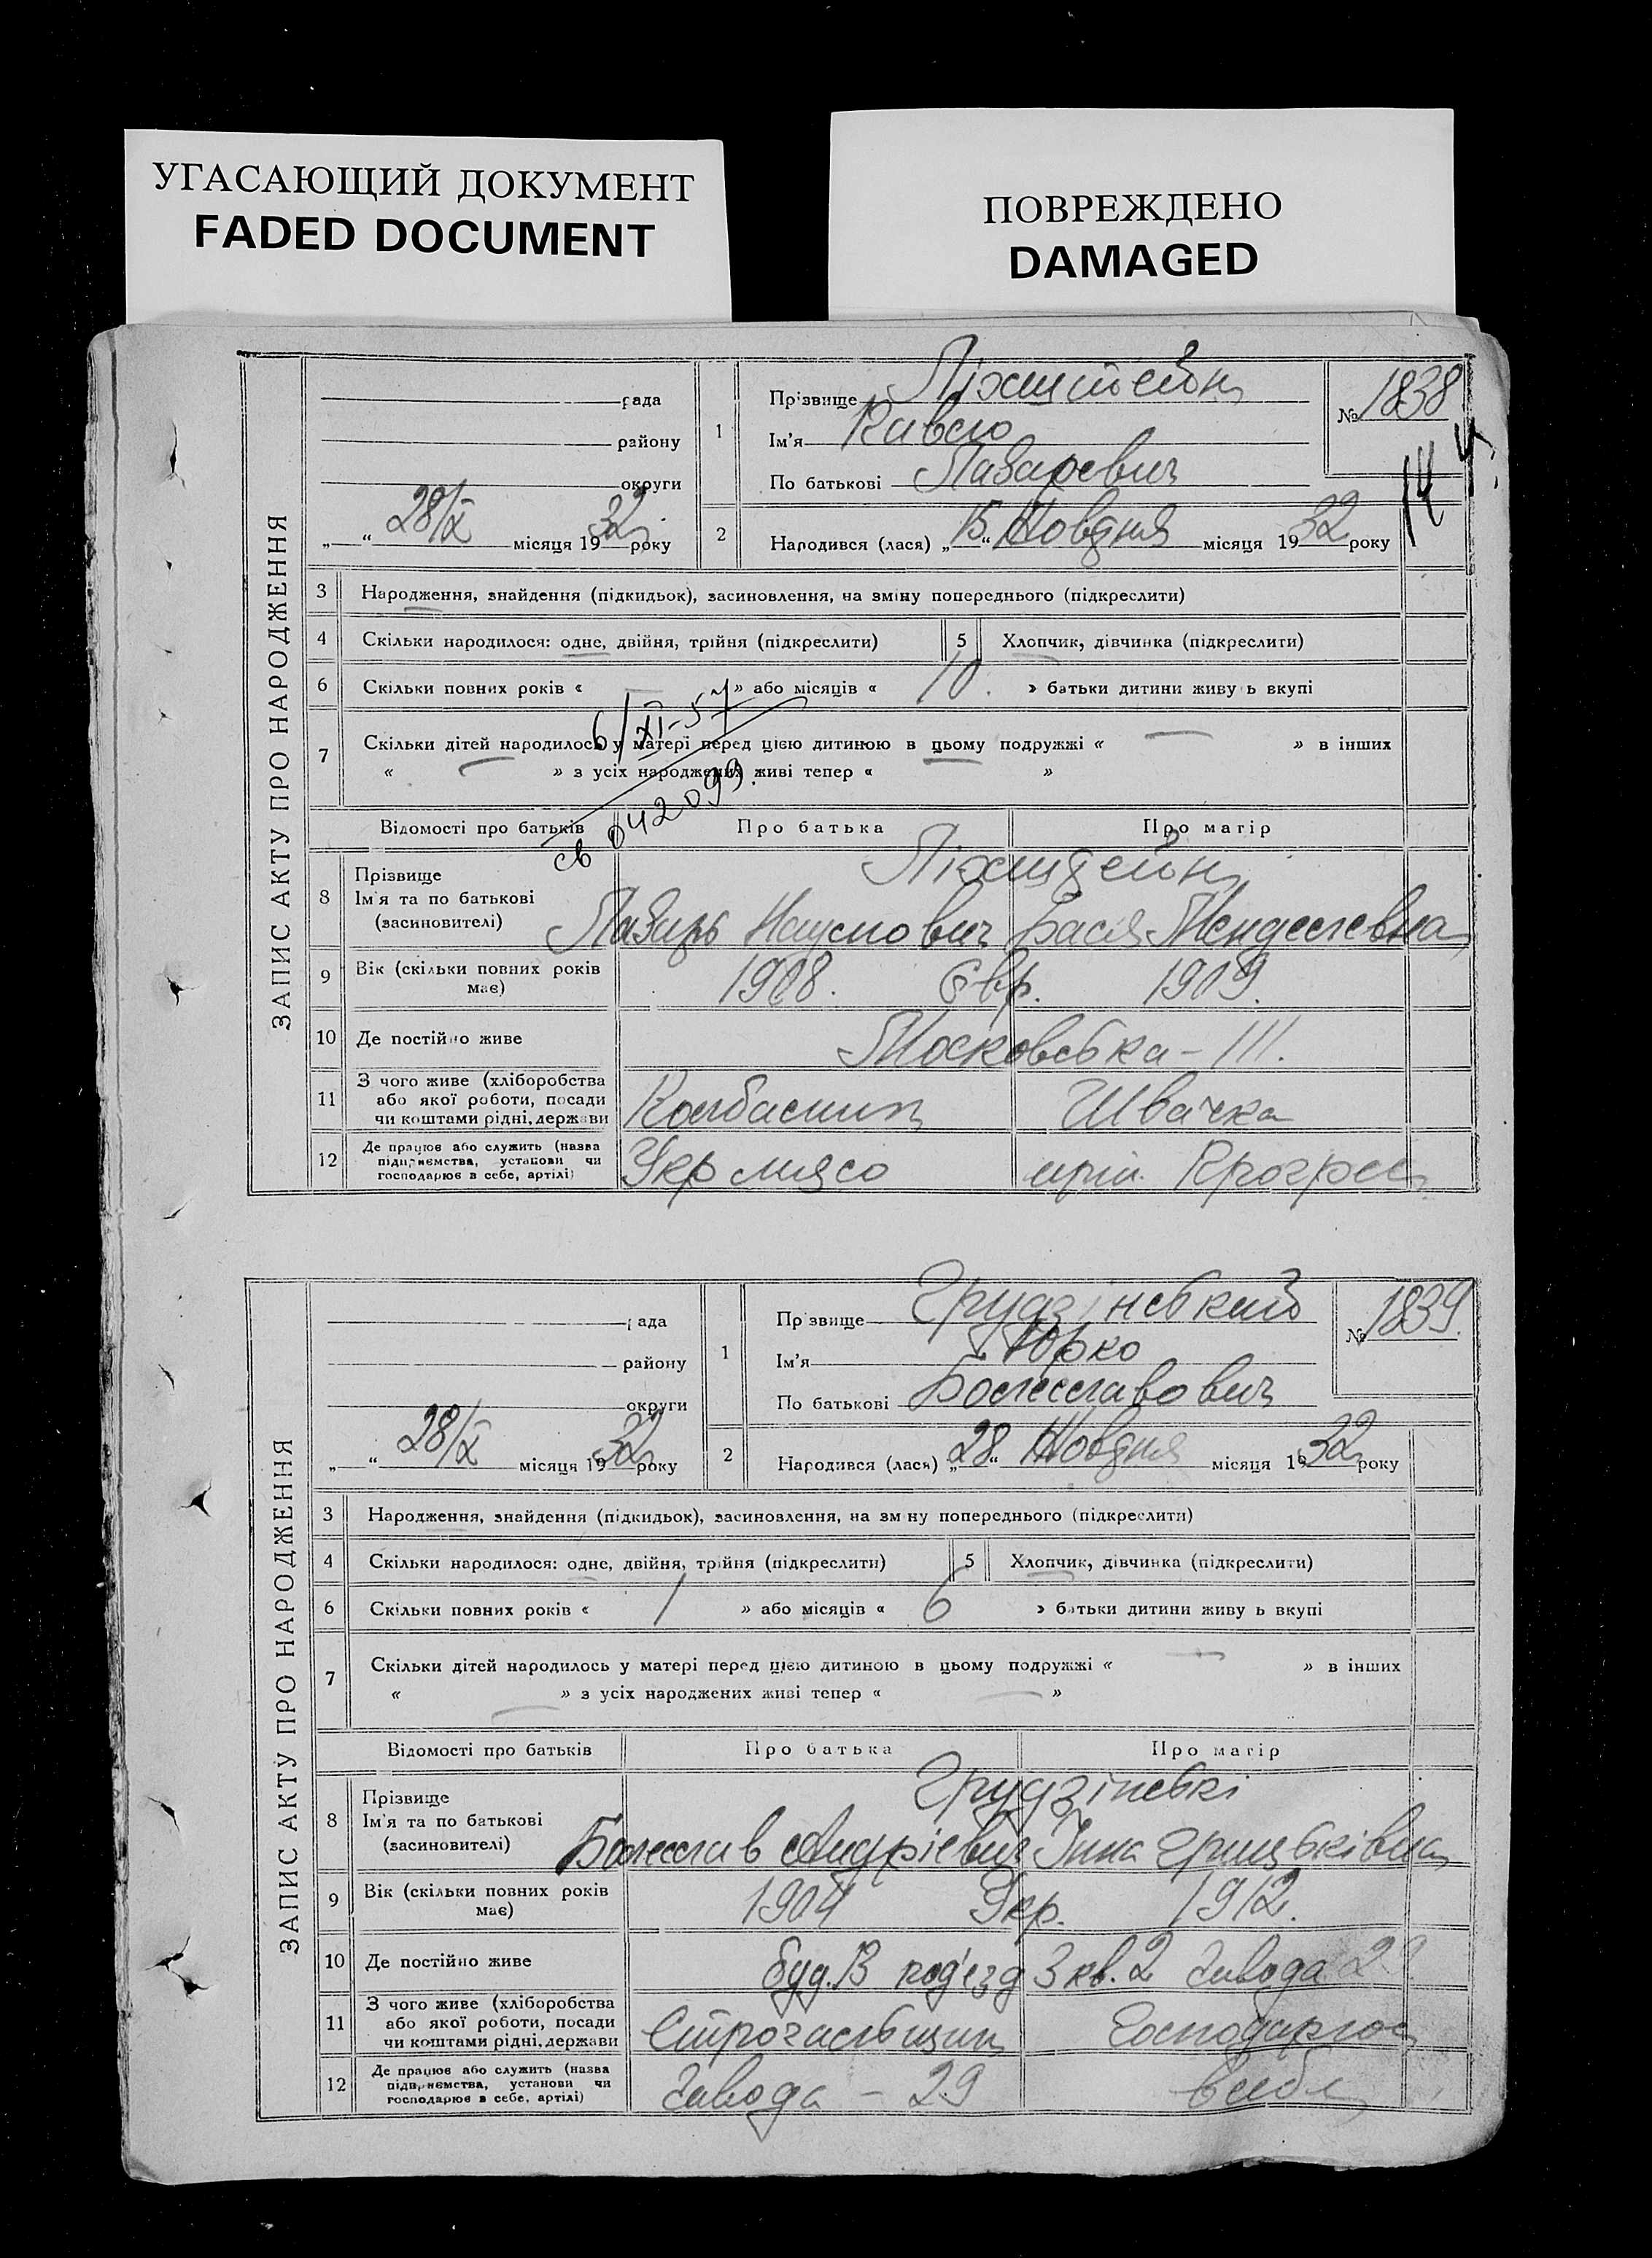 УГАСАЮЩИЙ ДОКУМЕНТ
FADED DOCUMENT
ПОВРЕЖДЕНО
DAMAGED
ЗАПИС АКТУ ПРО НАРОДЖЕННЯ
рада
району
округи
„ “ 28/X місяця 1932 року
1 Прізвище Ліхштейн
Ім'я
По батькові Лазаревич
№ 1838
2 Народився (лася) „15“ Жовдня місяця 1932 року
3 Народження, знайдення (підкидьок), засиновлення, на зміну попереднього (підкреслити)
4 Скільки народилося: одне, двійня, трійня (підкреслити) 5 Хлопчик, дівчинка (підкреслити)
6 Скільки повних років « — » або місяців « 10. » батьки дитини живуть вкупі
7 Скільки дітей народилось у матері перед цією дитиною в цьому подружжі « — » в інших
« — » з усіх народжених живі тепер « »
6/XI-57
св 042099.
Відомості про батьків Про батька Про матір
8 Прізвище
Ім'я та по батькові
(засиновителі)
Ліхштейн
Лазарь Наумович Бася Менделевна
9 Вік (скільки повних років має) 1908. Євр. 1909.
10 Де постійно живе Московська – 111.
11 З чого живе (хліборобства
або якої роботи, посади
чи коштами рідні, держави
Колбасник Швачка
12 Де працює або служить (назва
підприємства, установи чи
господарює в себе, артілі)
Укрмясо арт. Прогрес
ЗАПИС АКТУ ПРО НАРОДЖЕННЯ
рада
району
округи
„ “ 28/X місяця 1932 року
1 Прізвище Грудзінський
Ім'я Юрко
По батькові Болеславович
№ 1839.
2 Народився (лася) „28“ Жовдня місяця 1932 року
3 Народження, знайдення (підкидьок), засиновлення, на зміну попереднього (підкреслити)
4 Скільки народилося: одне, двійня, трійня (підкреслити) 5 Хлопчик, дівчинка (підкреслити)
6 Скільки повних років « 1 » або місяців « 6 » батьки дитини живуть вкупі
7 Скільки дітей народилось у матері перед цією дитиною в цьому подружжі « — » в інших
« — » з усіх народжених живі тепер « — »
Відомості про батьків Про батька Про матір
8 Прізвище
Ім'я та по батькові
(засиновителі)
Грудзінські
Болеслав Андрієвич Інна Грицьківна
9 Вік (скільки повних років має) 1904 Укр. 1912.
10 Де постійно живе буд. В под'езд 3 кв. 2 Завода 29
11 З чого живе (хліборобства
або якої роботи, посади
чи коштами рідні, держави
Строгальщик Господарює
12 Де працює або служить (назва
підприємства, установи чи
господарює в себе, артілі)
Завода – 29 в себе